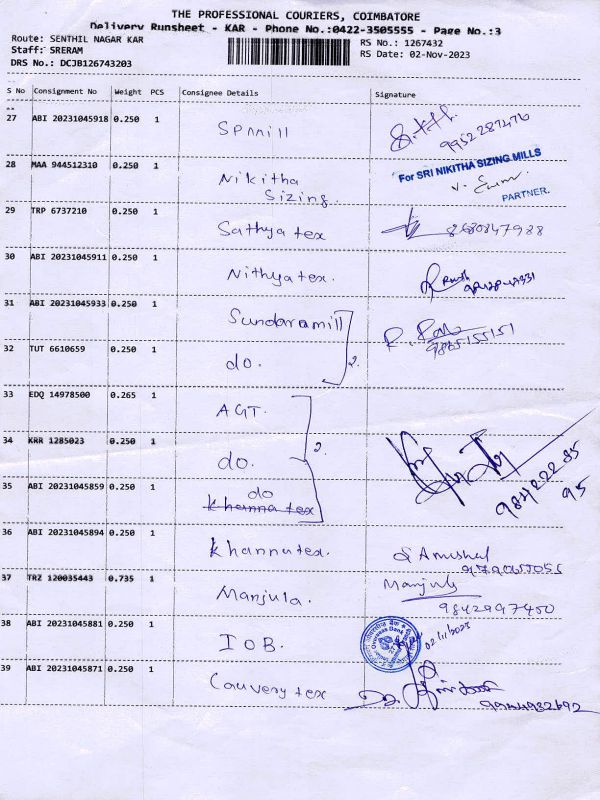 THE PROFESSIONAL COURIERS, COIMBATORE
Delivery Runsheet - KAR - Phone No.:0422-3505555 - Page No.:3
Route: SENTHIL NAGAR KAR
Staff: SRERAM
DRS No.: DCJB126743203
RS No.: 1267432
RS Date: 02-Nov-2023
S No Consignment No Weight PCS Consignee Details Signature
27 ABI 20231045918 0.250 1 SPmill
9952287476
28 MAA 944512310 0.250 1 Nikitha
Sizing.
For SRI NIKITHA SIZING MILLS
PARTNER.
29 TRP 6737210 0.250 1 Sathya tex 8680847988
30 ABI 20231045911 0.250 1 Nithya tex.
31 ABI 20231045933 0.250 1 Sundaramill
9865155151
32 TUT 6610659 0.250 1 do. 2.
33 EDQ 14978500 0.265 1 AGT.
34 KRR 1285023 0.250 1 do. 2.
98422285
95
35 ABI 20231045859 0.250 1 do
khanna tex
36 ABI 20231045894 0.250 1 khanna tex.
37 TRZ 120035443 0.735 1 Manjula. Manjula
9842997450
38 ABI 20231045881 0.250 1 IOB.
02/11/2023
39 ABI 20231045871 0.250 1 Cauvery tex
9944932692